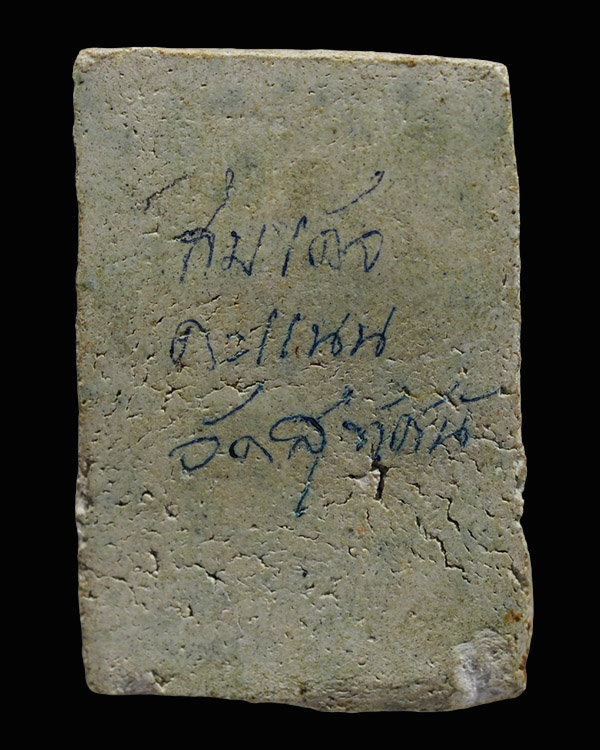 สมเด็จ
คะแนน
วัดสุทัศน์